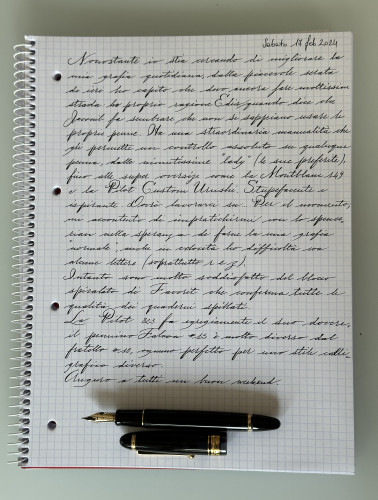 Sabato 17 feb 2024
Nonostante io stia cercando di migliorare la
mia grafia quotidiana, dalla piacevole serata
di ieri ho capito che devo ancora fare moltissima
strada. Ha proprio ragione Edis quando dice che
fa sembrare che non si sappiano usare le
proprie penne. Ha una straordinaria manualità che
gli permette un controllo assoluto su qualunque
penna, dalle minutissime "lady" (le sue preferite),
fino alle super oversize come la Montblanc 149
e la Pilot Custom Urushi. Stupefacente e
ispirante. Dovrò lavorarci su. Per il momento,
mi accontento di impratichirmi con lo spence-
rian nella speranza di farne la mia grafia
"normale", anche in velocità ho difficoltà con
alcune lettere (soprattutto r e z).
Intanto sono molto soddisfatto del blocco
spiralato di Favorit che conferma tutte le
qualità dei quaderni spillati.
La Pilot 823 fa egregiamente il suo dovere,
il pennino Falcon #15 è molto diverso dal
fratello #10, ognuno perfetto per uno stile calli-
grafico diverso.
Auguro a tutti un buon weekend.